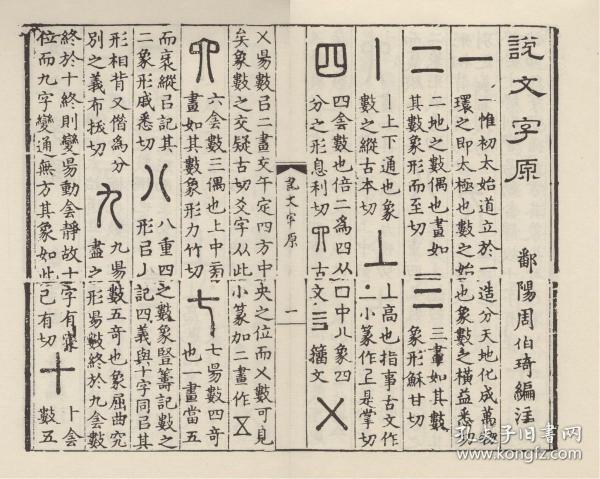 說文字原
鄱陽周伯琦編注
一
一惟初太始道立於一造分天地化成萬物
環之即太極也數之始也象數之橫益悉切
二
二地之數偶也畫如
其數象形而至切
三
三畫如其數
象形穌甘切
丨
丨上下通也象
數之縱古本切
丄
丄高也指事古文作
二小篆作上是掌切
四
四侌數也倍二爲四从囗中八象四
分之形息利切𦉭古文亖籀文
㐅
說文字原
一
㐅昜數㠯二畫交午定四方中央之位而㐅數可見
矣象數之交疑古切爻字从此小篆加二畫作五
六
六侌數三偶也上中兩
畫如其數象形力竹切
七
七昜數四奇
也一畫當五
而衺縱㠯記其
二象形戚悉切
八
八重四之數象豎籌記數之
形㠯丿記四義與十字同㠯其
形相背又借為分
別之義布拔切
九
九昜數五奇也象屈曲究
盡之形昜數終於九侌數
終於十終則變昜動侌靜故十字有
位而九字變通無方其象如此己有切
十
卜侌
數五
孔夫子旧书网
kongfz.com